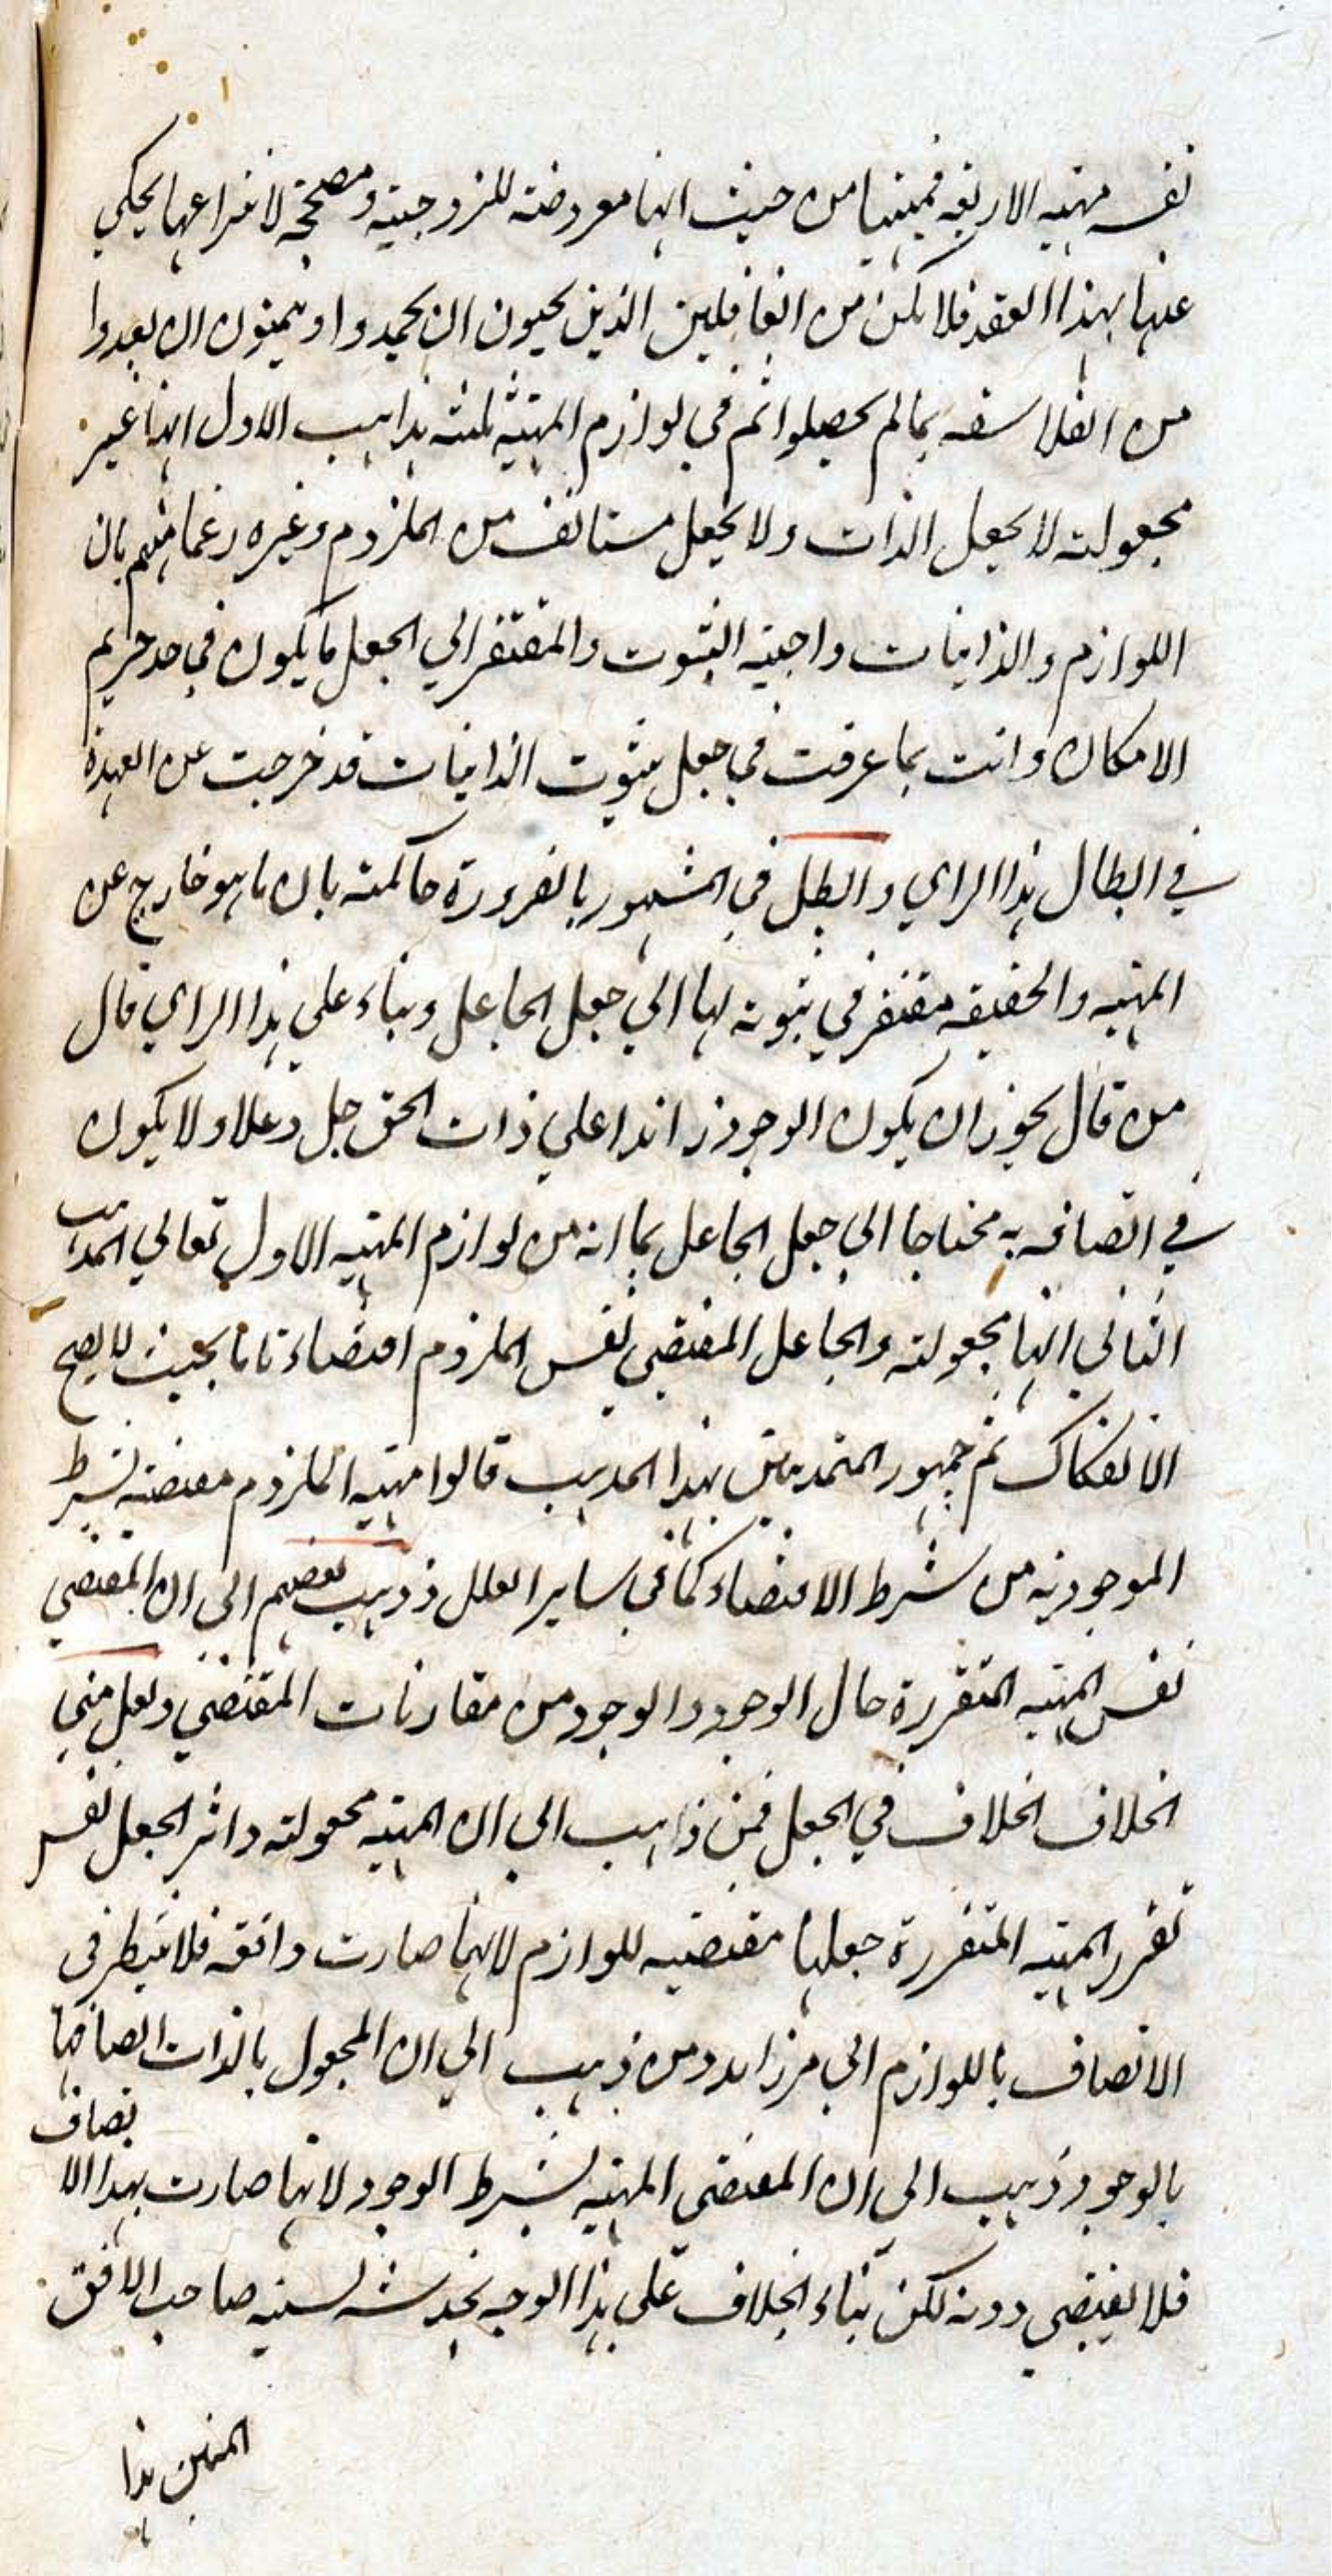 نفس مهية الاربعة فمهيتها من حيث انها معروضة للزوجية ومصححة لانتزاعها يحكي
عنها بهذا العقد فلا تكن من الغافلين الذين يحبون ان يحمدوا او يتمنون ان يعدوا
من الفلاسفة بما لم يحصلوا ثم في لوازم المهية ثلثة مذاهب الاول انها غير
مجعولة لا بجعل الذات ولا بجعل مستانف من الملزوم وغيره زعما منهم بان
اللوازم والذاتيات واجبة الثبوت والمفتقر الي الجعل ما يكون في حد حريم
الامكان وانت بما عرفت في جعل ثبوت الذاتيات قد خرجت عن العهدة
في ابطال هذا الراي وابطل في المشهور بالضرورة حاكمة بان ما هو خارج عن
المهية والحقيقة مفتقر في ثبوته لها الي جعل الجاعل وبناء علي هذا الراي قال
من قال يجوز ان يكون الوجود زائدا علي ذات الحق جل وعلا ولا يكون
في اتصافه به محتاجا الي جعل الجاعل بما انه من لوازم المهية الاول تعالي المذهب
الثاني انها مجعولة والجاعل المقتضي نفس الملزوم اقتضاء تاما بحيث لا يصح
الانفكاك ثم جمهور المتمذهبين بهذا المذهب قالوا مهية الملزوم مقتضية بشرط
الموجودية من شرط الاقتضاء كما في ساير العلل وذهب بعضهم الي ان المقتضي
نفس المهية المتقررة حال الوجود والوجود من مقارنات المقتضي ولعل مبني
الخلاف الخلاف في الجعل فمن ذاهب الي ان المهية مجعولة واثر الجعل نفس
تقرر المهية المتقررة جعلها مقتضية للوازم لانها صارت واقعة فلا ينتظر في
الاتصاف باللوازم الي امر زايد ومن ذهب الي ان المجعول بالذات اتصافها
بالوجود ذهب الي ان المقتضي المهية بشرط الوجود لانها صارت بهذا الاتصاف
فلا يقتضي دونه لكن بناء الخلاف علي هذا الوجه يخدشه نسبة صاحب الافق
المبين هذا